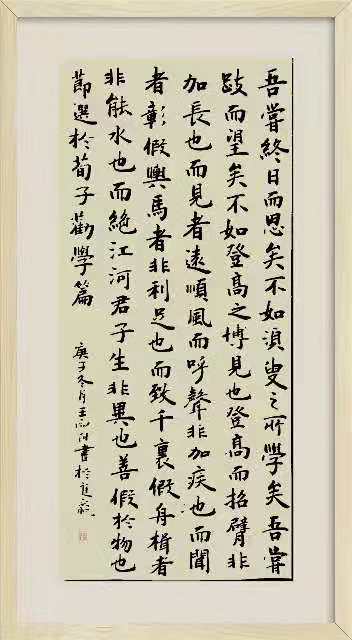 吾嘗終日而思矣不如須臾之所學矣吾嘗
跂而望矣不如登高之博見也登高而招臂非
加長也而見者遠順風而呼聲非加疾也而聞
者彰假輿馬者非利足也而致千裏假舟楫者
非能水也而絶江河君子生非異也善假於物也
節選於荀子勸學篇
庚子冬月王書於